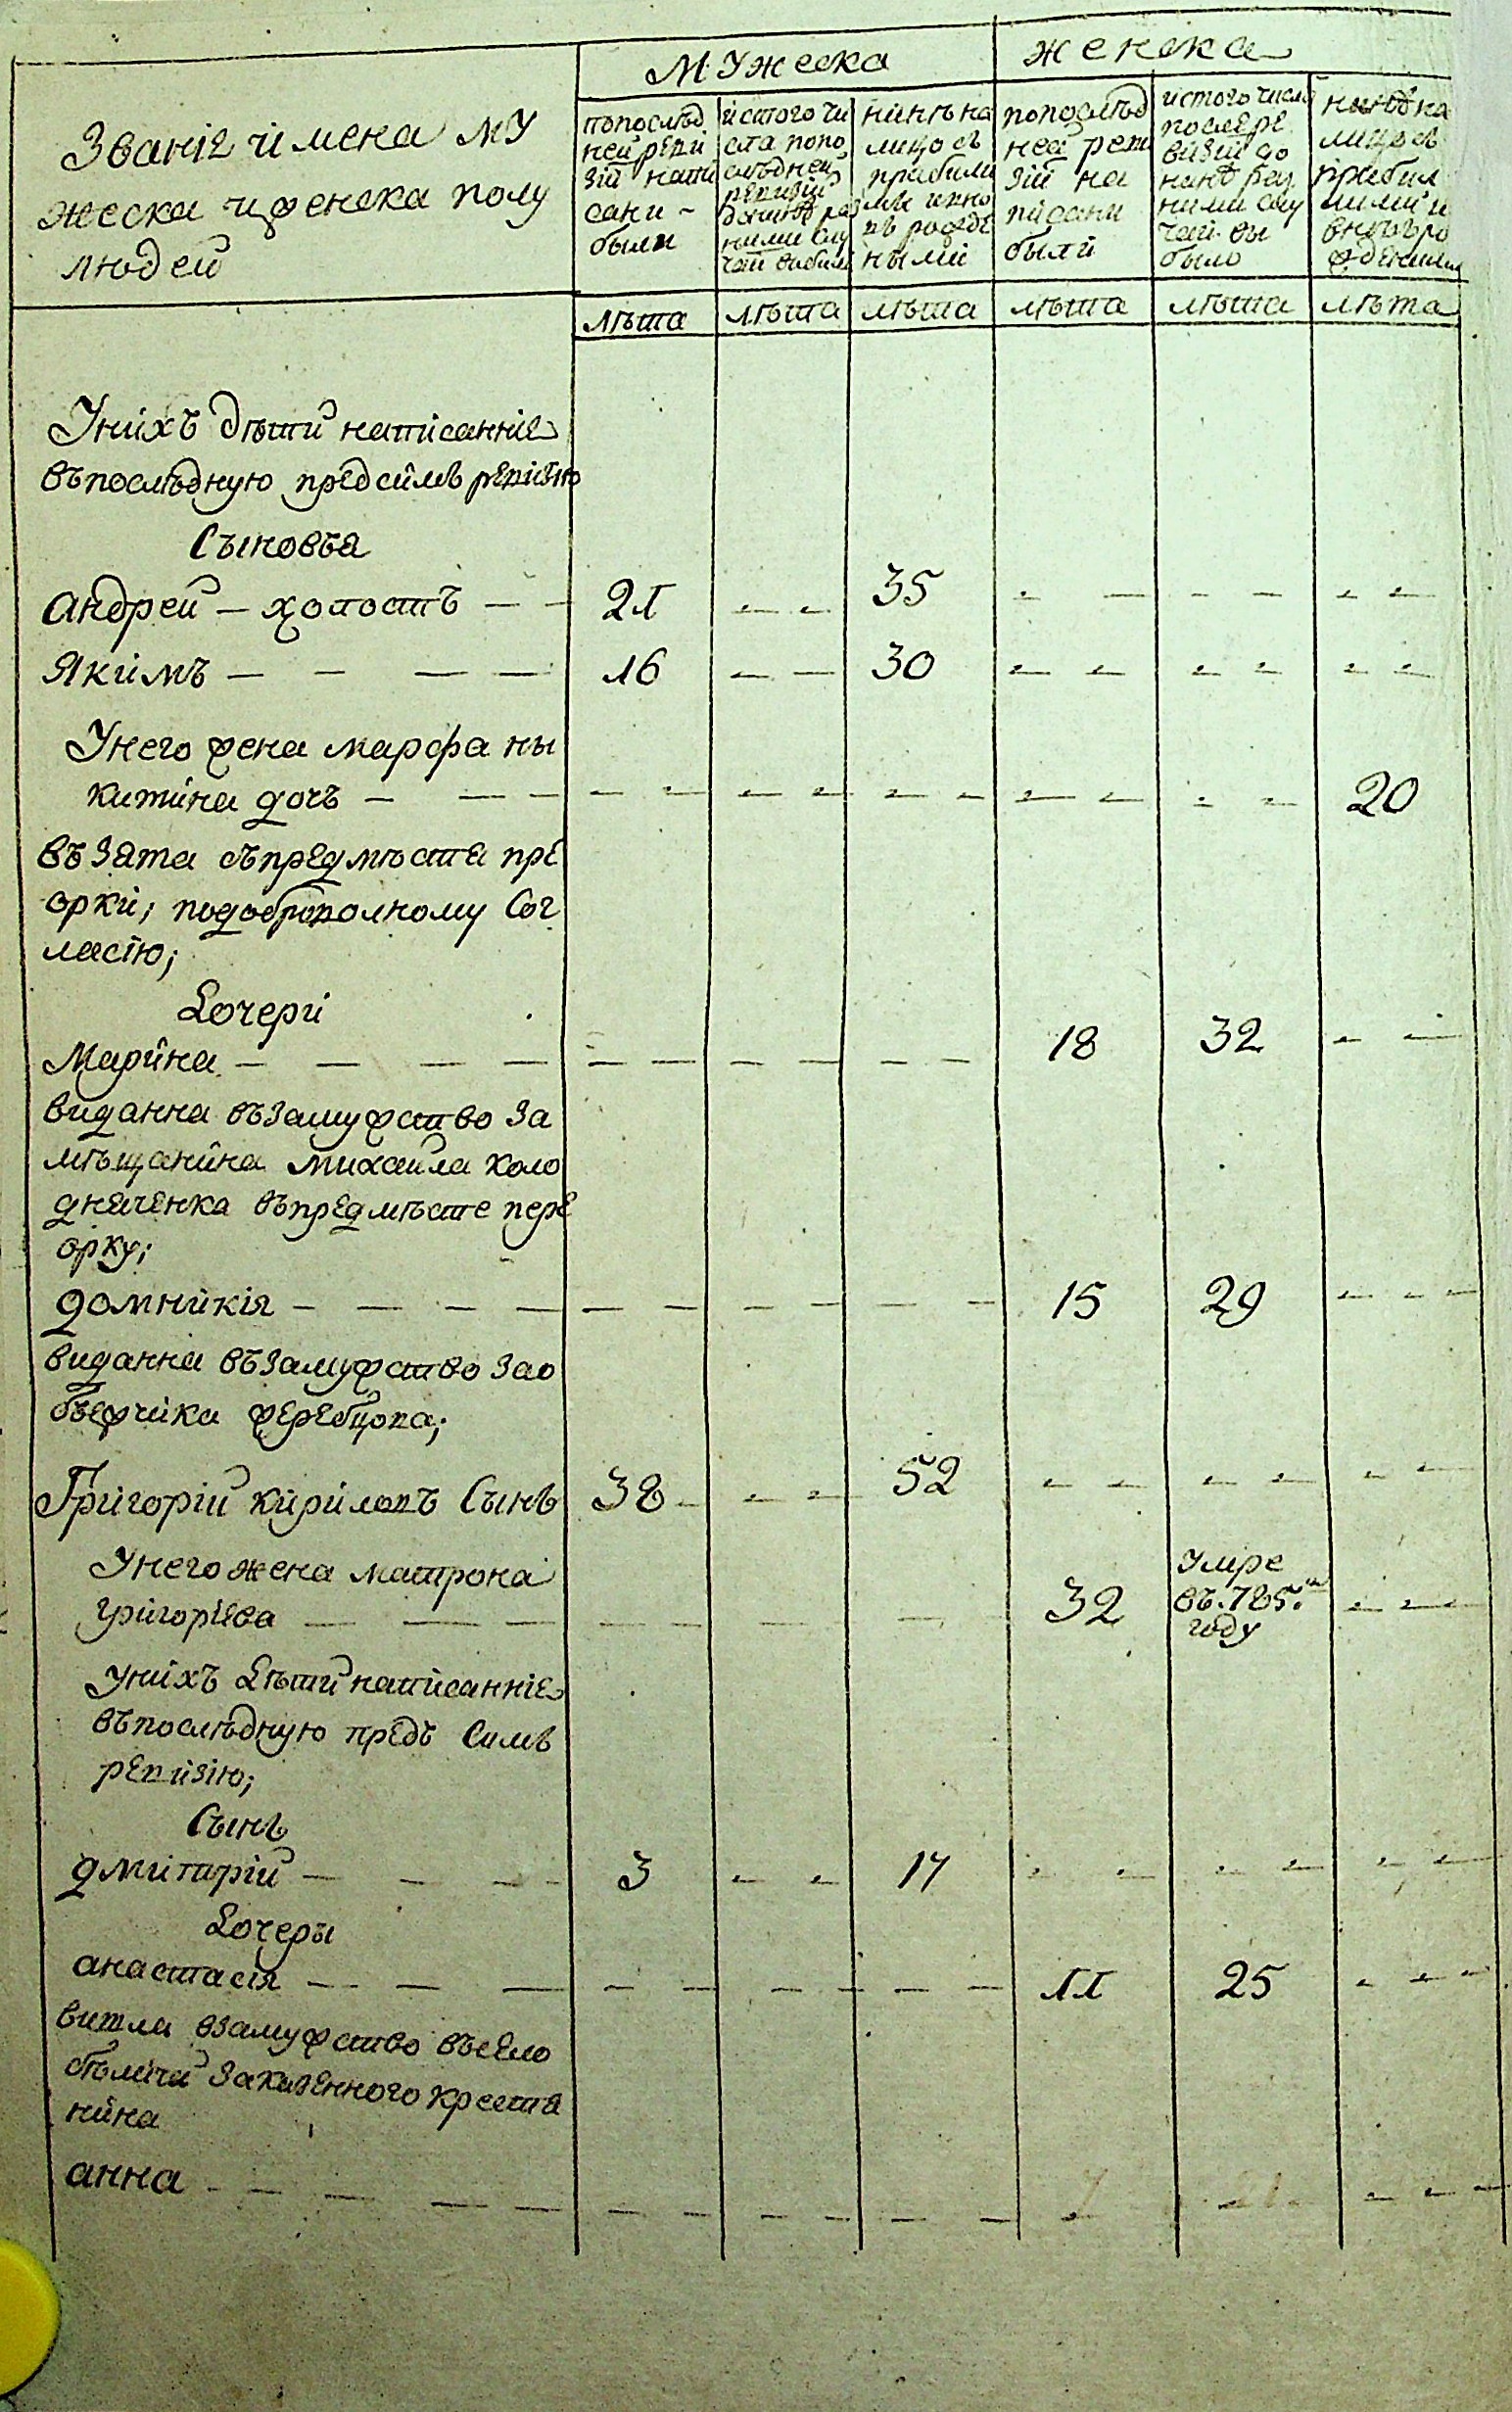 Мужеска женска
Званіе и имена му
жеска и женска полу
людей
по послѣд
ней реви
зіи напи
сани
были
и стого чи
сла по по
слѣдней
ревизіи
до нинѣ раз
ними слу
чаи вибили
нинѣ на
лицо съ
прибили
ми и вно
въ рожде
ными
по послѣд
ней реви
зіи на
писани
были
и стого числа
после ре
визіи до
нинѣ раз
ними слу
чаи вы
было
нинѣ на
лицо съ
прибил
шими и
вновъ ро
жденими
лѣта лѣта лѣта лѣта лѣта лѣта
У нихъ дѣти написанніе
въ послѣдную предсимъ ревизію
Сыновъя
андрей — холостъ — — 21 — — 35 — — — — — —
Якимъ — — — — 16 — — 30 — — — — — —
У него жена марфа ны
китина дочъ — — — — — — — — — — — — — 20
възята съ предмѣстя пре
орки; по доброволному Сог
ласію;
Дочери
Марина — — — — — — — — — — 18 32 — —
виданна въ замужство за
мѣщанина михайла коло
дняченка въ предмѣсте пере
орку;
домникія — — — — — — — — — — 15 29 — — —
виданна въ замужство за о
бъежчика жеребцова;
Григорій кириловъ Сынъ 38 — — — 52 — — — — — —
У него жена матрона
григоріева — — — — — — — — 32 умре въ .785.м году — — —
у нихъ Дѣти написанніе
въ послѣдную предъ симъ
ревизію;
Сынъ
дмитрій — — — — 3 — — 17 — — — — — —
Дочеры
анастасія — — — — — — — — — 11 25 — — —
вишла взамужство въ село
бѣлѣчи за казенного крестя
нина
анна — — — — — — — — — — — — — — —